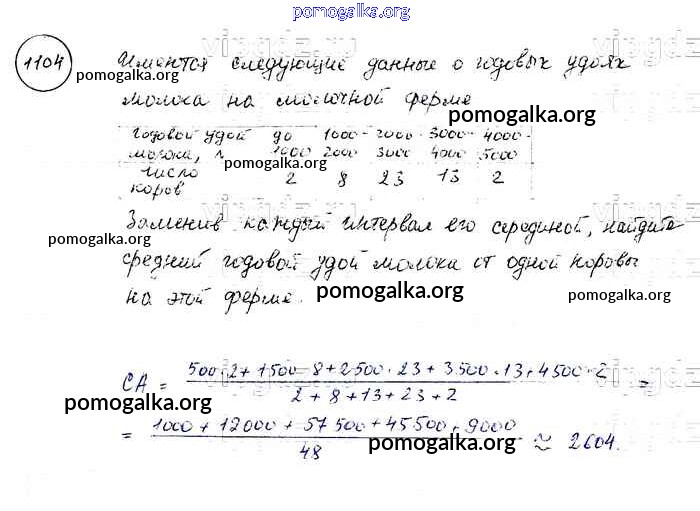 pomogalka.org
1104 Имеются следующие данные о годовых удоях
pomogalka.org
молока на молочной ферме
pomogalka.org
годовой удой до 1000- 2000- 3000- 4000-
молока, л 1000 2000 3000 4000 5000
pomogalka.org
число 2 8 23 13 2
коров
Заменив каждый интервал его серединой, найдите
pomogalka.org
средний годовой удой молока от одной коровы
на этой ферме.
pomogalka.org pomogalka.org
СА = 500·2+1500·8+2500·23+3500·13+4500·2 =
2+8+13+23+2
pomogalka.org
= 1000+12000+57500+45500+9000 ≈ 2604.
48
pomogalka.org